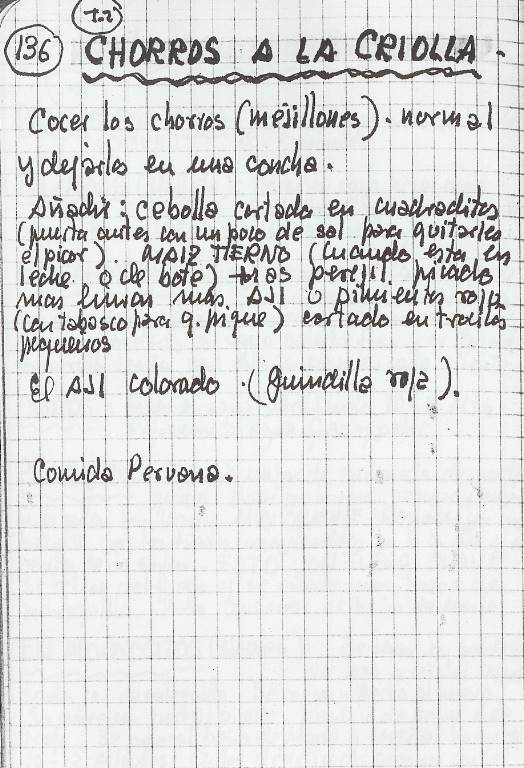 T-2
136 CHORROS A LA CRIOLLA.
Cocer los chorros (mejillones). normal
y dejarles en una concha.
Añadir: cebolla cortada en cuadraditos
(puesta antes con un poco de sal para quitarles
el picor). MAIZ TIERNO (cuando esta en
leche o de bote) mas perejil picado
mas limon mas AJI o pimientos rojos
(con tabasco para q. pique) cortado en trocitos
pequeños
El AJI colorado. (guindilla roja).
Comida Peruana.